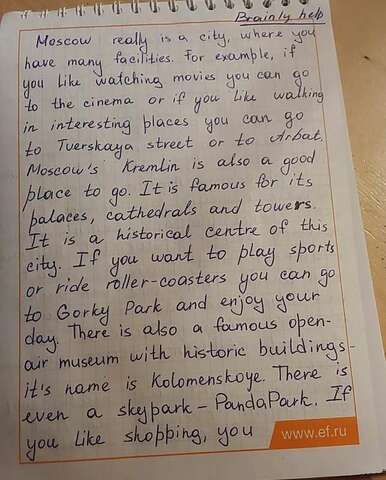 Brainly help
Moscow really is a city, where you
have many facilities. For example, if
you like watching movies you can go
to the cinema or if you like walking
in interesting places you can go
to Tverskaya street or to Arbat.
Moscow's Kremlin is also a good
place to go. It is famous for its
palaces, cathedrals and towers.
It is a historical centre of this
city. If you want to play sports
or ride roller-coasters you can go
to Gorky Park and enjoy your
day. There is also a famous open-
air museum with historic buildings-
it's name is Kolomenskoye. There is
even a skypark - PandaPark. If
you like shopping, you
www.ef.ru